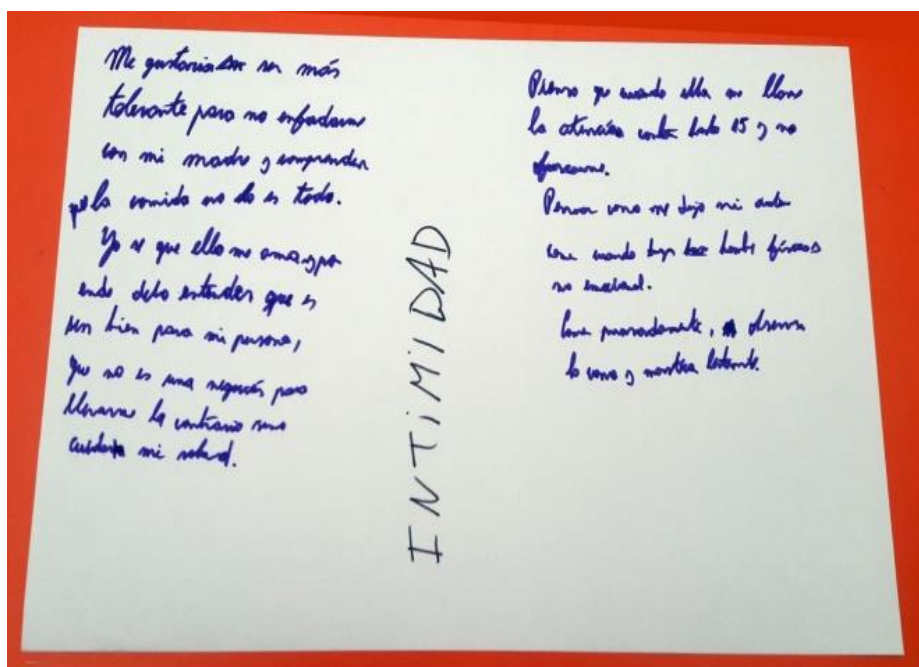 Me gustaria ser más
tolerante para no enfadarme
con mi madre y comprender
que la comida no lo es todo.
Yo se que ella me ama y por
ende debo entender que es
un bien para mi persona,
que no es una negación para
llevarme la contraria sino
cuidar mi salud.
INTIMIDAD
Pienso que cuando ella me llame
la atención contar hasta 15 y no
ofuscarme.
Pensar como me dijo mi
cuando tengo hambre física o
no emocional.
Comer pausadamente, observar
lo como y masticar lentamente.